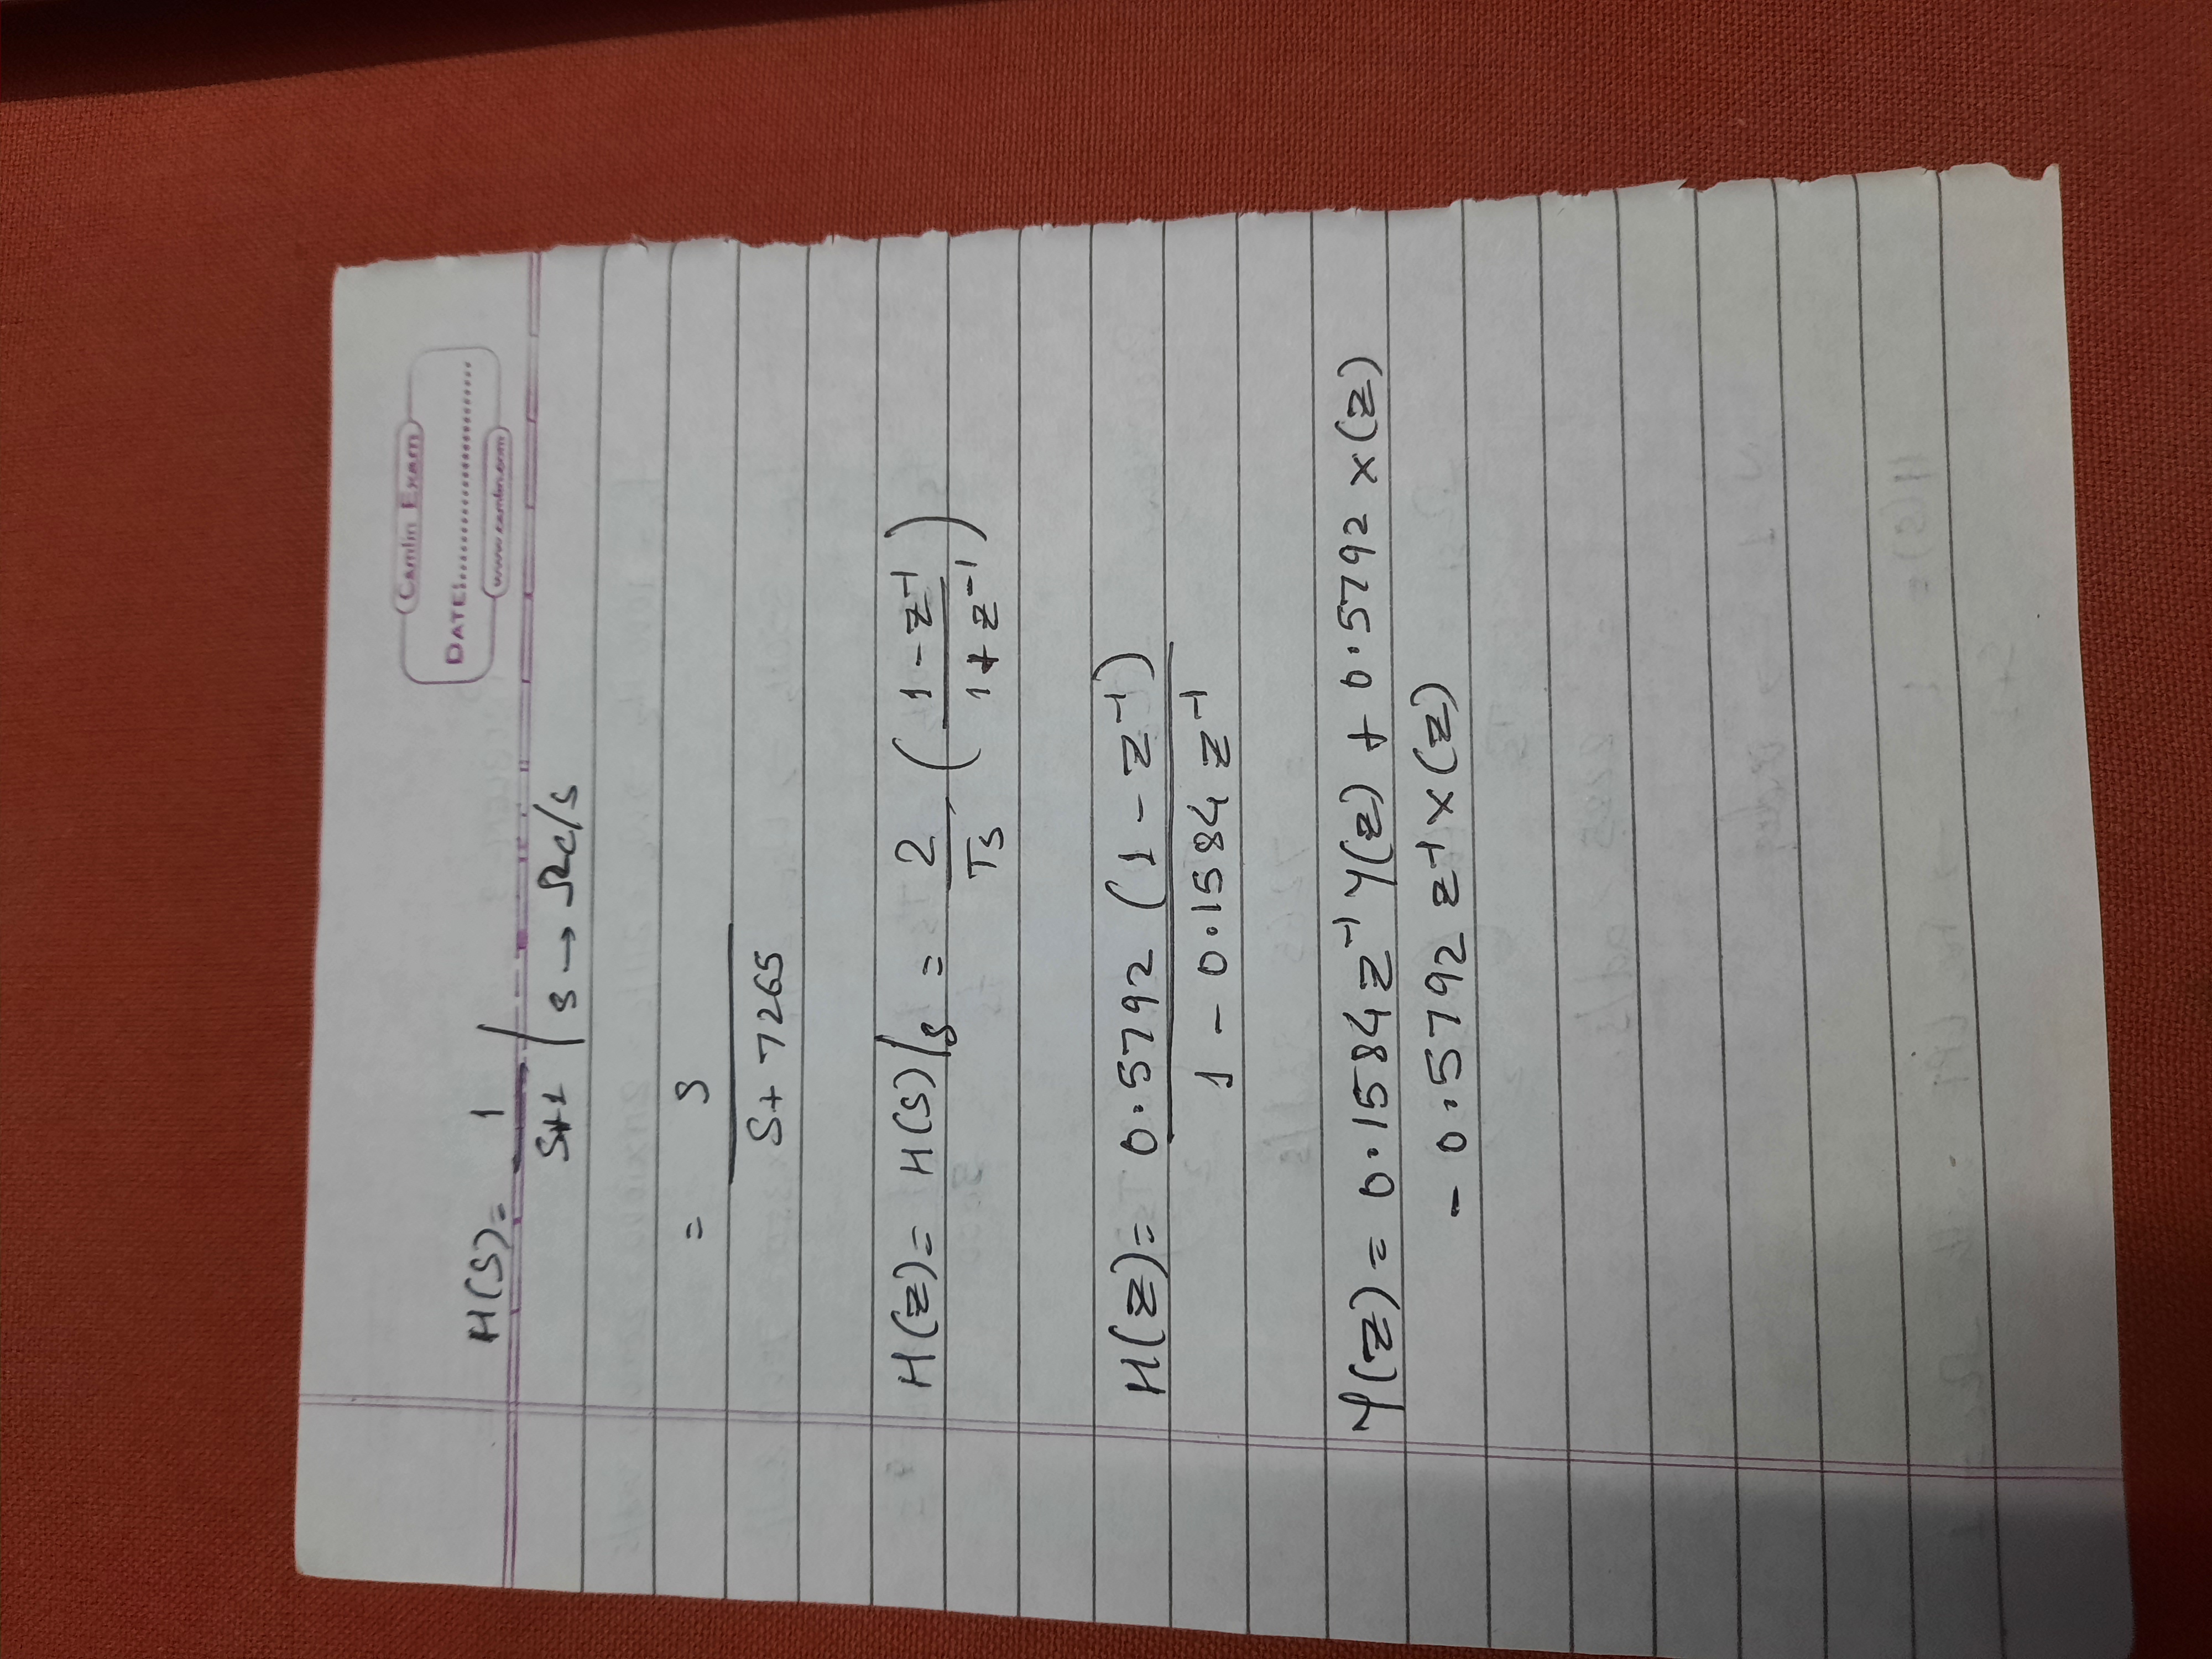 Camlin Exam
DATE:..............................
www.camlin.com
H(S)= 1 / S+1 | s → Ωc/s
= S / S+ 7265
H(Z)= H(S)/s = 2/Ts ( 1-z⁻¹ / 1+z⁻¹ )
H(Z)= 0.5792 (1-z⁻¹) / 1 - 0.1584 z⁻¹
Y(Z) = 0.1584 z⁻¹ Y(z) + 0.5792 x(z)
- 0.5792 z⁻¹ x(z)